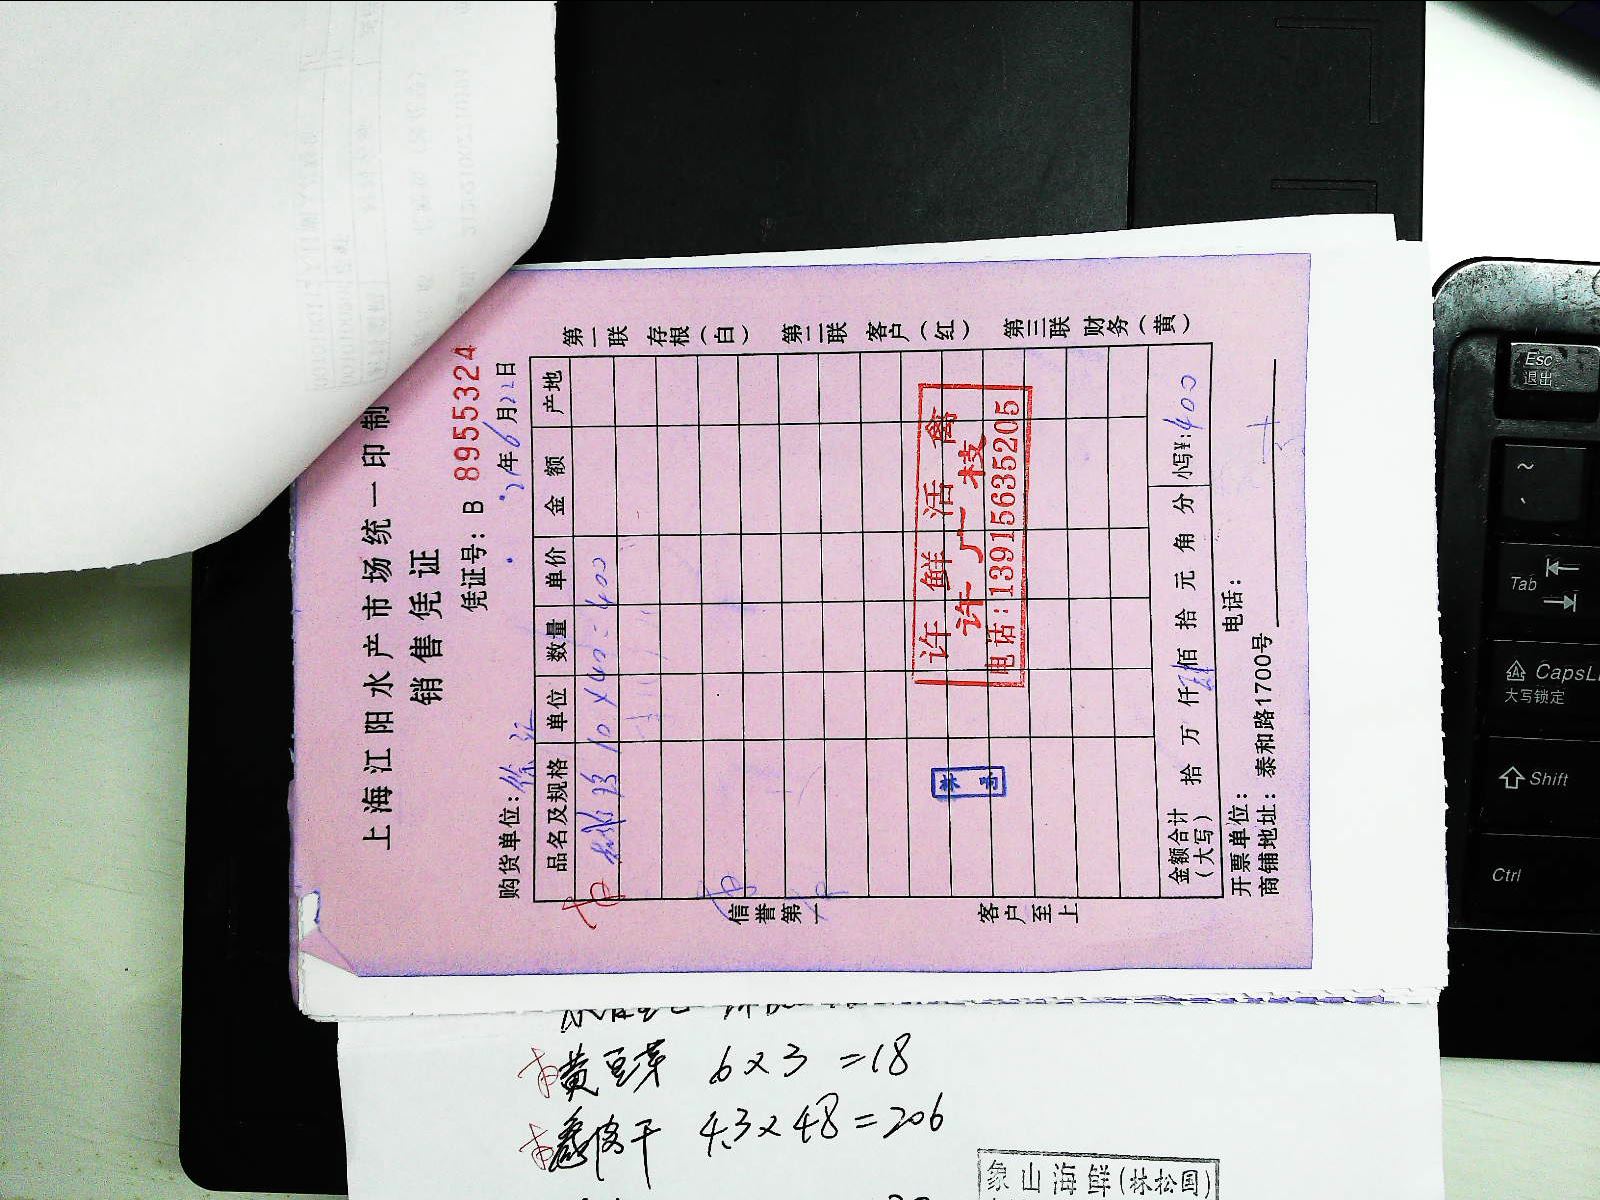 上海江阳水产市场统一印制
销售凭证
凭证号: B 8955324
21年6月22日
购货单位:
品名及规格 单位 数量 单价 金额 产地
10×40=400
许鲜活禽
许广枝
电话:13915635205
金额合计(大写) 拾 万 仟 佰 拾 元 角 分 小写¥:400
开票单位: 电话:
商铺地址: 泰和路1700号
第一联 存根(白) 第二联 客户(红) 第三联 财务(黄)
信誉第一 客户至上
黄豆芽 6×3=18
4.3×48=206
象山海鲜(林松国)
Esc
退出
~
Tab
CapsL
大写锁定
Shift
Ctrl